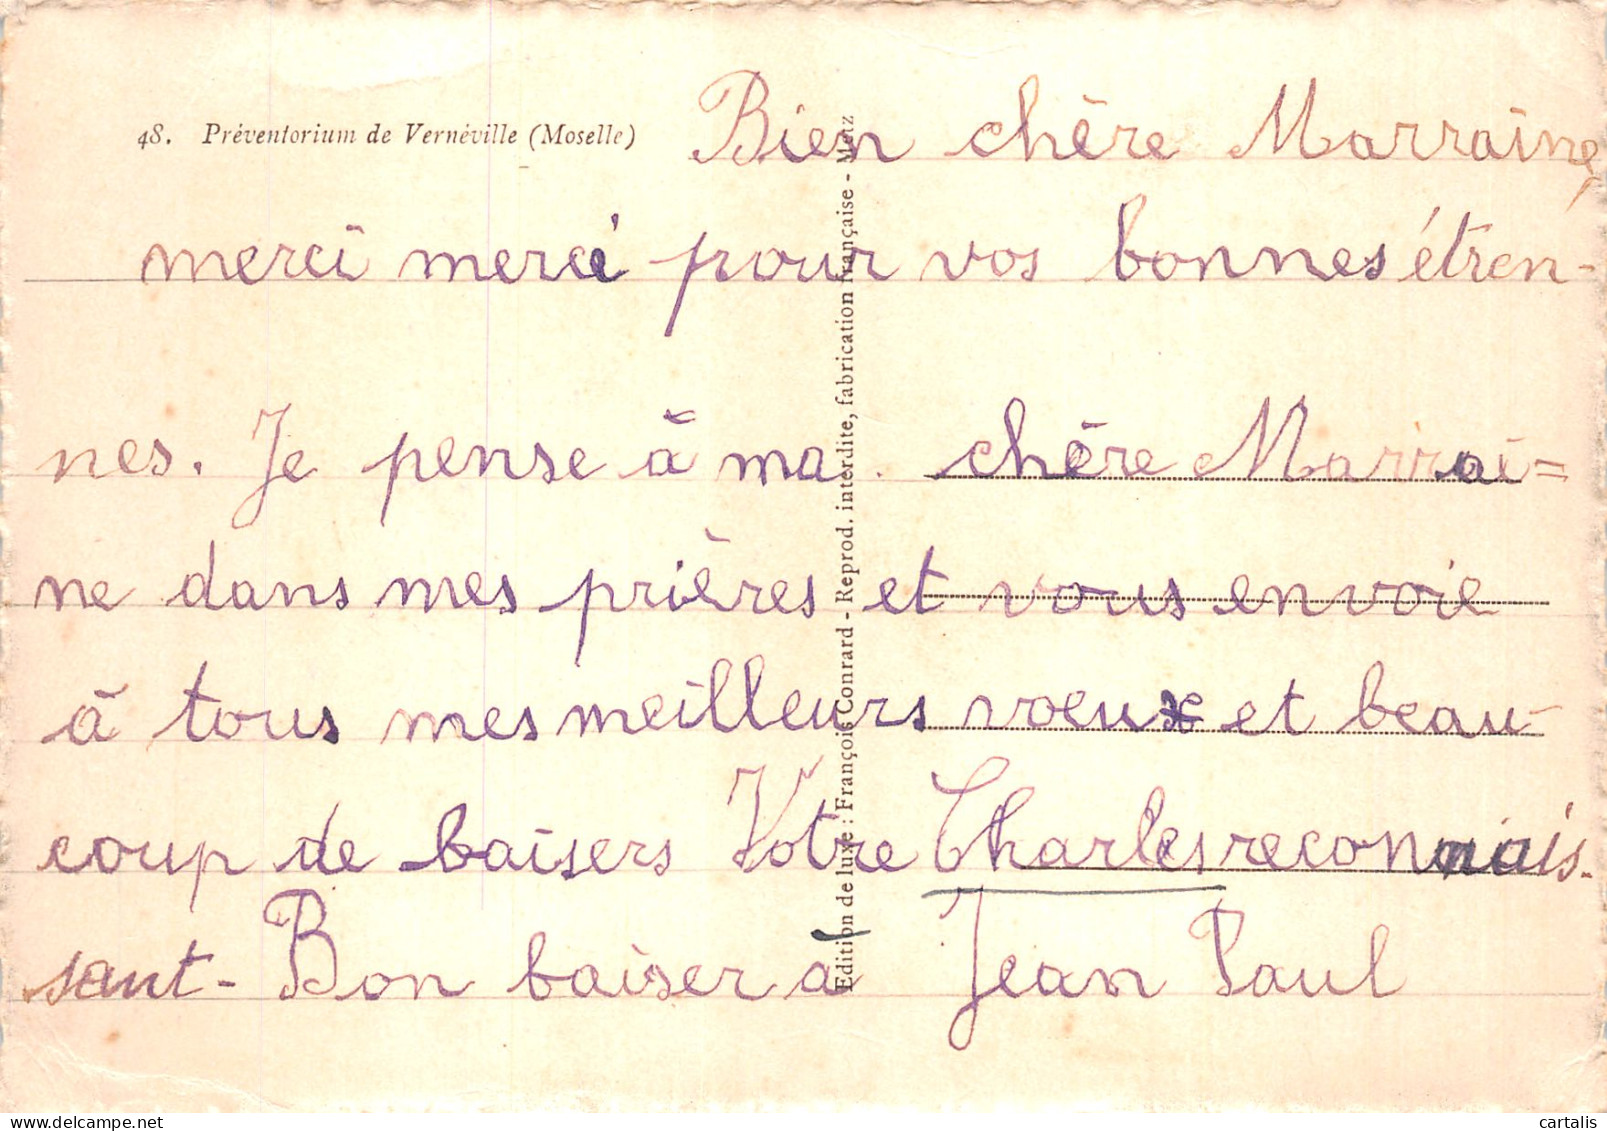 48. Préventorium de Vernéville (Moselle)
Bien chère Marraine,
merci merci pour vos bonnes étren-
nes. Je pense à ma chère Marrai=
ne dans mes prières et vous envoie
à tous mes meilleurs voeux et beau-
coup de baisers Votre Charles reconnais-
sant - Bon baiser à Jean Paul
Edition de luxe : François Conrard - Reprod. interdite, fabrication française - Metz
cartalis